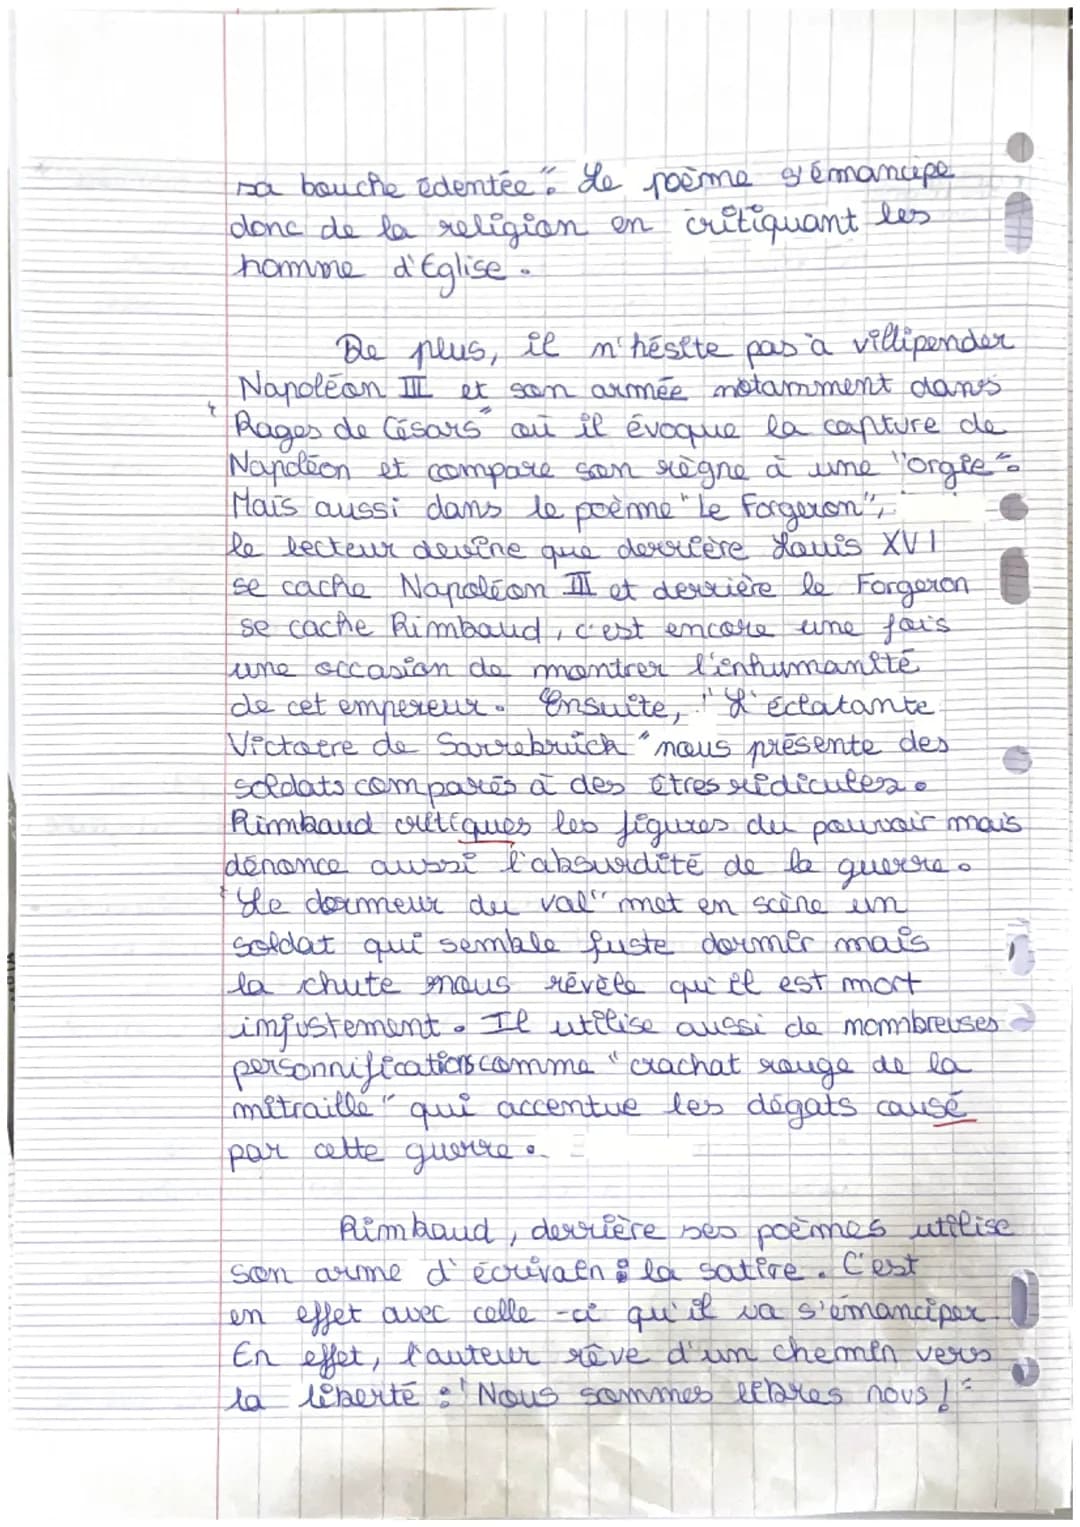 sa bouche édentée". Le poème s'émancipe
donc de la religion en critiquant les
homme d'Eglise.
De plus, il n'hésite pas à villipender
Napoléon III et son armée notamment dans
"Rages de Césars" où il évoque la capture de
Napoléon et compare son règne à une "orgie".
Mais aussi dans le poème "Le Forgeron",
le lecteur devine que derrière Louis XVI
se cache Napoléon III et derrière le Forgeron
se cache Rimbaud, c'est encore une fois
une occasion de montrer l'inhumanité
de cet empereur. Ensuite, "L'éclatante
Victoire de Sarrebrück" nous présente des
soldats comparés à des êtres ridicules.
Rimbaud critiques les figures du pouvoir mais
dénonce aussi l'absurdité de la guerre.
"Le dormeur du val" met en scène un
soldat qui semble juste dormir mais
la chute nous révèle qu'il est mort
injustement. Il utilise aussi de nombreuses
personnifications comme "crachat rouge de la
mitraille" qui accentue les dégats causé
par cette guerre.
Rimbaud, derrière ses poèmes utilise
son arme d'écrivain : la satire. C'est
en effet avec celle-ci qu'il va s'émanciper.
En effet, l'auteur rêve d'un chemin vers
la liberté : "Nous sommes libres nous !"